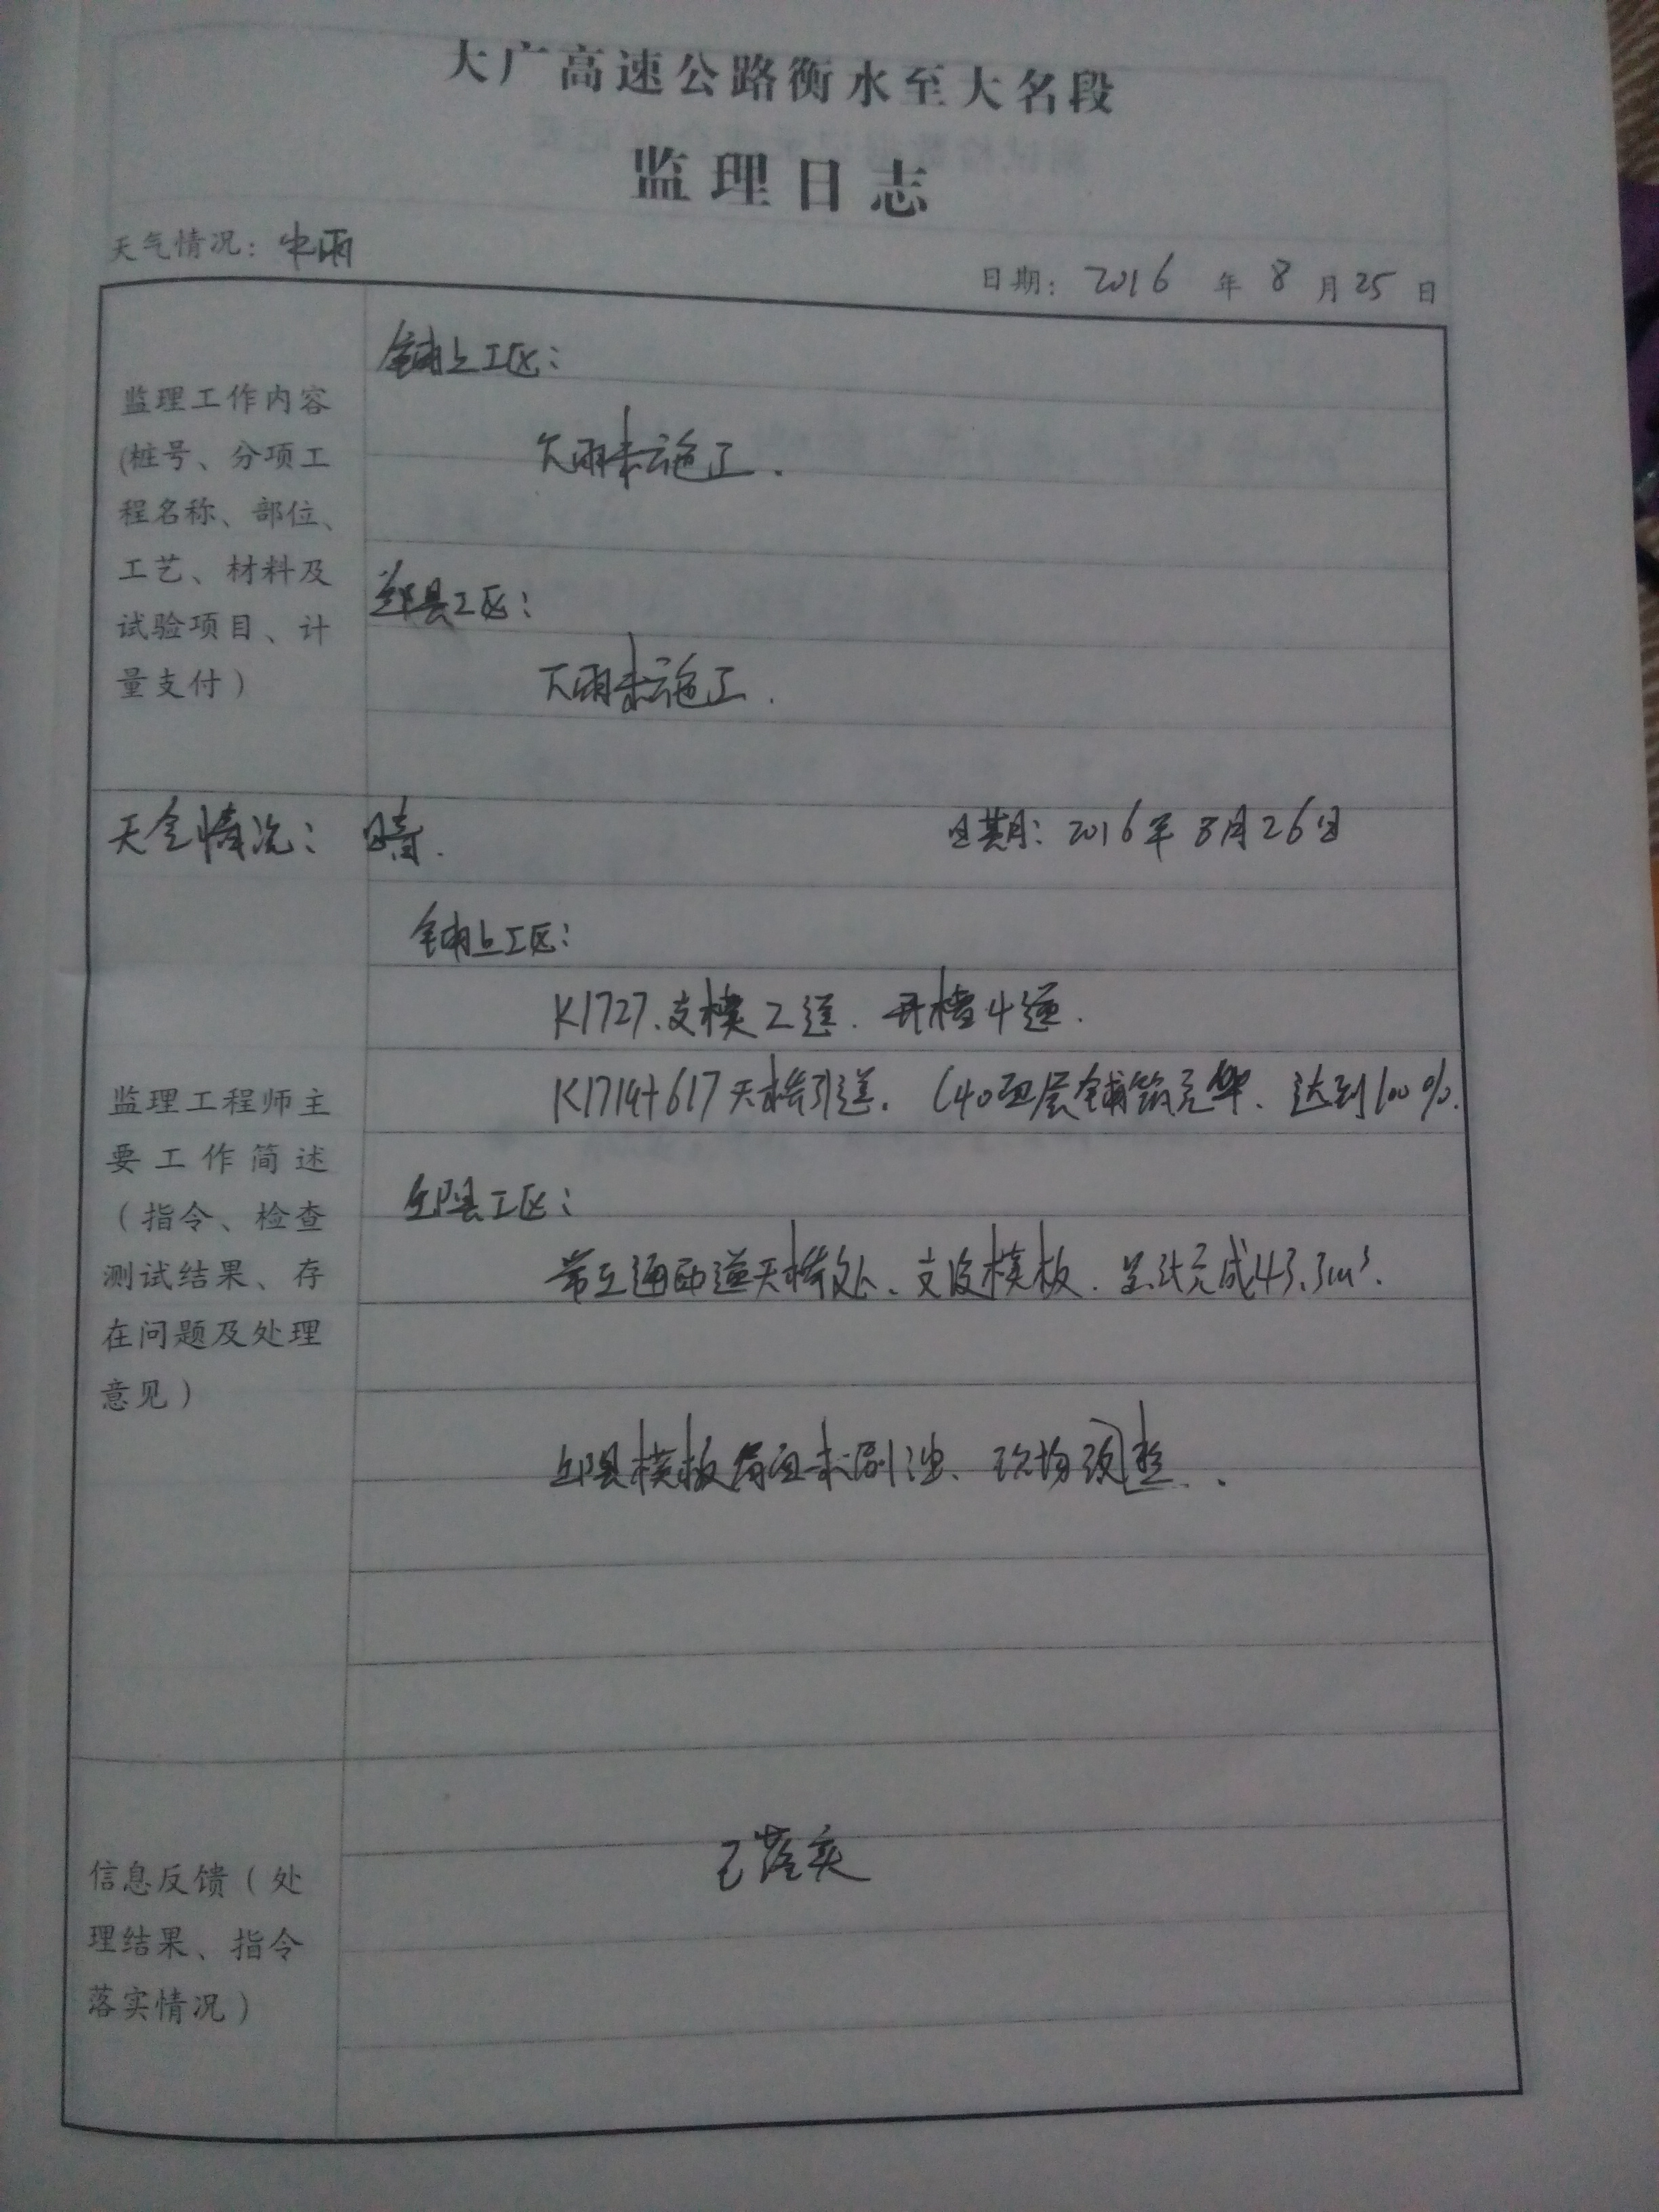 大广高速公路衡水至大名段
监理日志
天气情况：中雨
日期：2016 年 8 月 25 日
监理工作内容
(桩号、分项工
程名称、部位、
工艺、材料及
试验项目、计
量支付）
铺上工区：
下雨未施工.
邱县工区：
下雨未施工.
天气情况： 晴.
日期：2016年8月26日
监理工程师主
要工作简述
（指令、检查
测试结果、存
在问题及处理
意见）
铺上工区：
K1727、支模2道. 开槽4道.
K1714+617天桥引道. C40面层铺筑完毕、达到100%.
邱县工区：
互通匝道天桥处、支设模板. 共计完成43.3m³.
邱县模板 面未刷油、现场改整.
信息反馈（处
理结果、指令
落实情况）
已落实